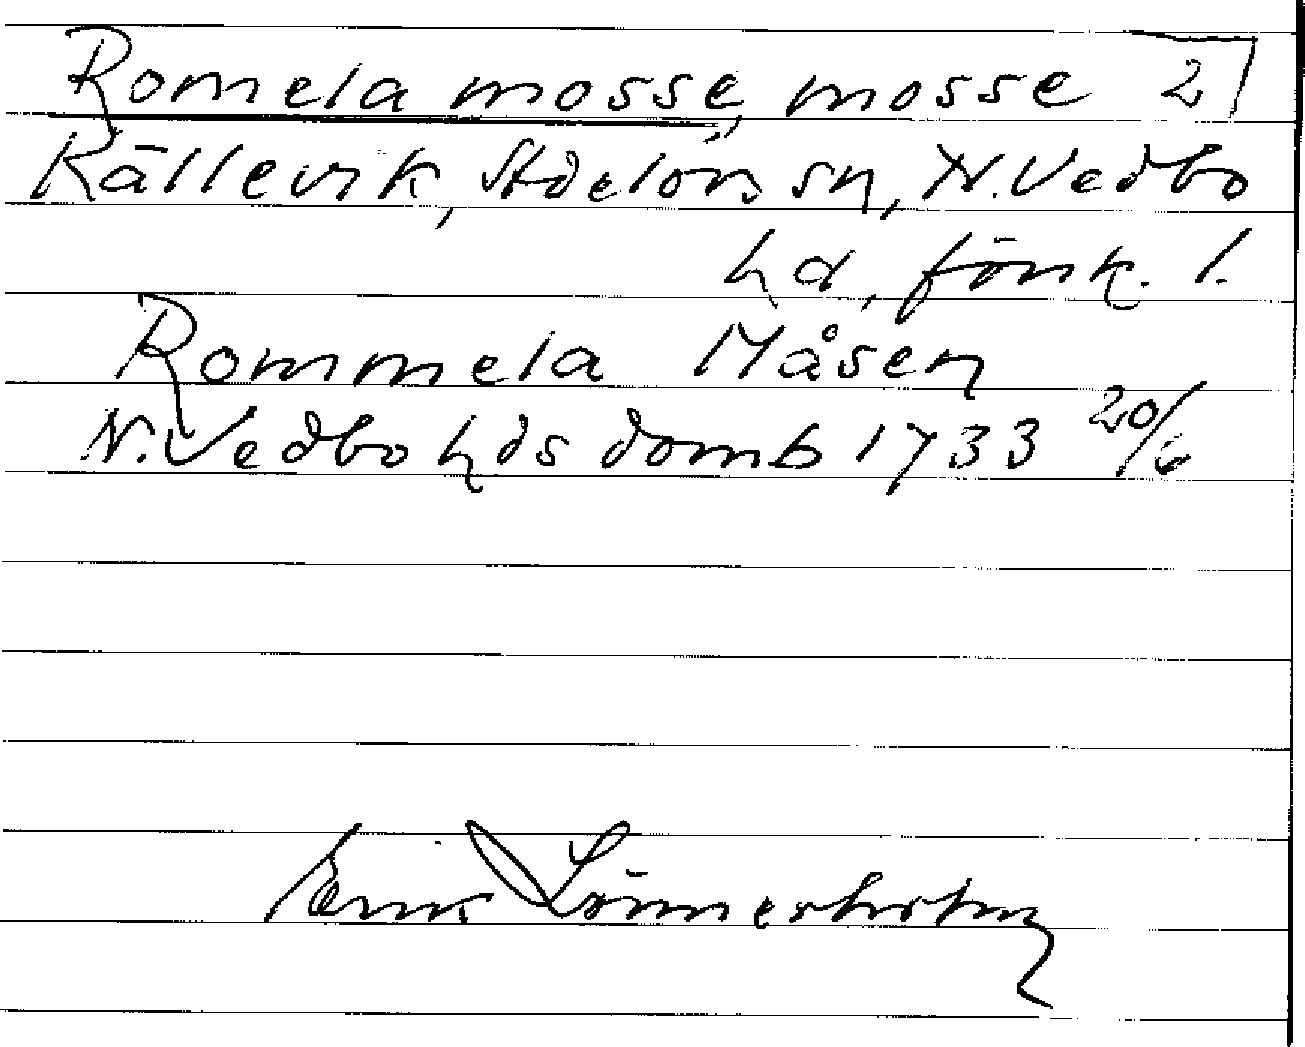 Romela mosse, mosse 2
Källevik, Stdelors sn, N. Vedbo
hd, Jönk. l.
Rommela Måsen
N. Vedbo hds domb 1733 20/6
Erik Lönnerholm